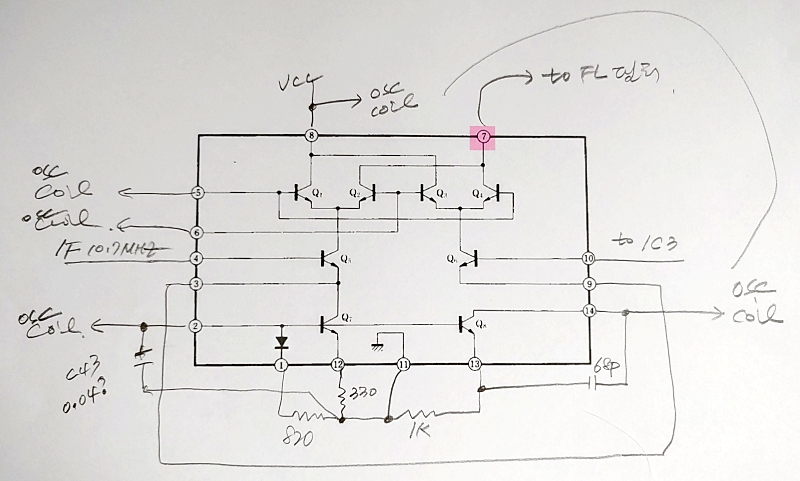 VCC
OSC
COIL
to FL 필터
8
7
OSC
COIL
5
Q1
Q2
Q3
Q4
OSC
COIL.
6
IF 10.7MHZ
4
Q5
Q6
10
to IC3
3
9
14
OSC
COIL
OSC
COIL.
2
Q7
Q8
1
12
11
13
C43
0.04?
68P
330
820
1K